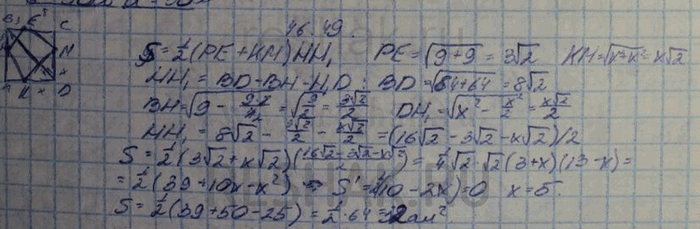 46.49.
B E C
S=½(PE+KM)HH₁ PE=√(9+9)=3√2 KM=√(x²+x²)=x√2
M
HH₁=BD-BH-H₁D: BD=√(64+64)=8√2
K D
BH=√(9-9/2)=√(9/2)=3√2/2 DH₁=√(x²-x²/2)=x√2/2
HH₁=8√2-3√2/2-x√2/2=(16√2-3√2-x√2)/2
S=½(3√2+x√2)((16√2-3√2-x√2)/2)=¼√2·√2(3+x)(13-x)=
=½(39+10x-x²) S'=½(10-2x)=0 x=5.
S=½(39+50-25)=½·64=32см².